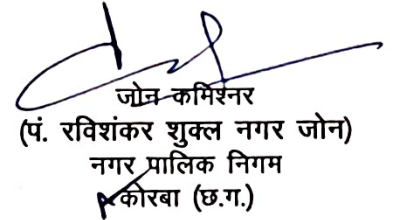 जोन कमिश्नर
(पं. रविशंकर शुक्ल नगर जोन)
नगर पालिक निगम
कोरबा (छ.ग.)